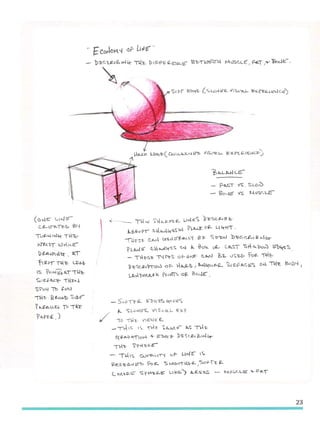 "Economy of Line"
- Describing the difference between muscle, fat, & bone.
Soft edge (slower visual experience)
Hard line (quick visual experience)
Balance
- Fast vs. slow
- Bone vs muscle
(one line
created by
turning the
wrist while
drawing, at
first the lead
is point at the
surface then
spun to run
the broad side
parallel to the
paper.)
- Thin sharper lines describe
abrupt changes in plane or light.
- These can generally be seen describing
plane changes in a box or cast shadow edges
- These types of line can be used for the
description of hard, angular surfaces on the body,
landmark points of bone.
- Softer edges give
a slower visual read
to the viewer
- This is the same as the
gradation & edge describing
the sphere
- This quality of line is
reserved for smoother, softer
(more sphere like) areas - muscle & fat
23